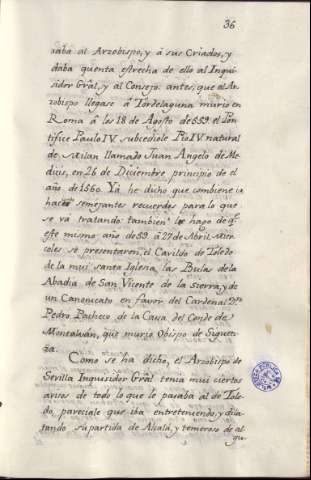 36
saba al Arzobispo, y á sus Criados, y
daba quenta estrecha de ello al Inqui-
sidor Grâl, y al Consejo: antes, que el Ar-
zobispo llegase á Tordelaguna murio en
Roma â los 18 de Agosto de 559. el Pon-
tifice Paulo IV. subcediole Pio IV. natural
de Milan llamado Juan Angelo de Me-
dicis, en 26 de Diciembre, principio de el
año de 1560. Yá he dicho que combiene ir
haciendo semejantes recuerdos para lo que
se vá tratando: tambien le hago de qe.
este mismo año de 59. â 27 de Abril Mier-
coles se presentaron, el Cavildo de Toledo
de la mui santa Iglesia, las Bulas de la
Abadia de San Vicente de la sierra, y de
un Canonicato en favor del Cardenal Dn.
Pedro Pacheco de la Casa del Conde de
Montalván, que murio Obispo de Siguen-
za.
Como se ha dicho, el Arzobispo de
Sevilla Inquisidor Grâl tenia mui ciertos
avisos de todo lo que le pasaba al de Tole-
do, pareciale que iba entreteniendo, y dila-
tando su partida de Alcalá, y temeroso de al
gu-